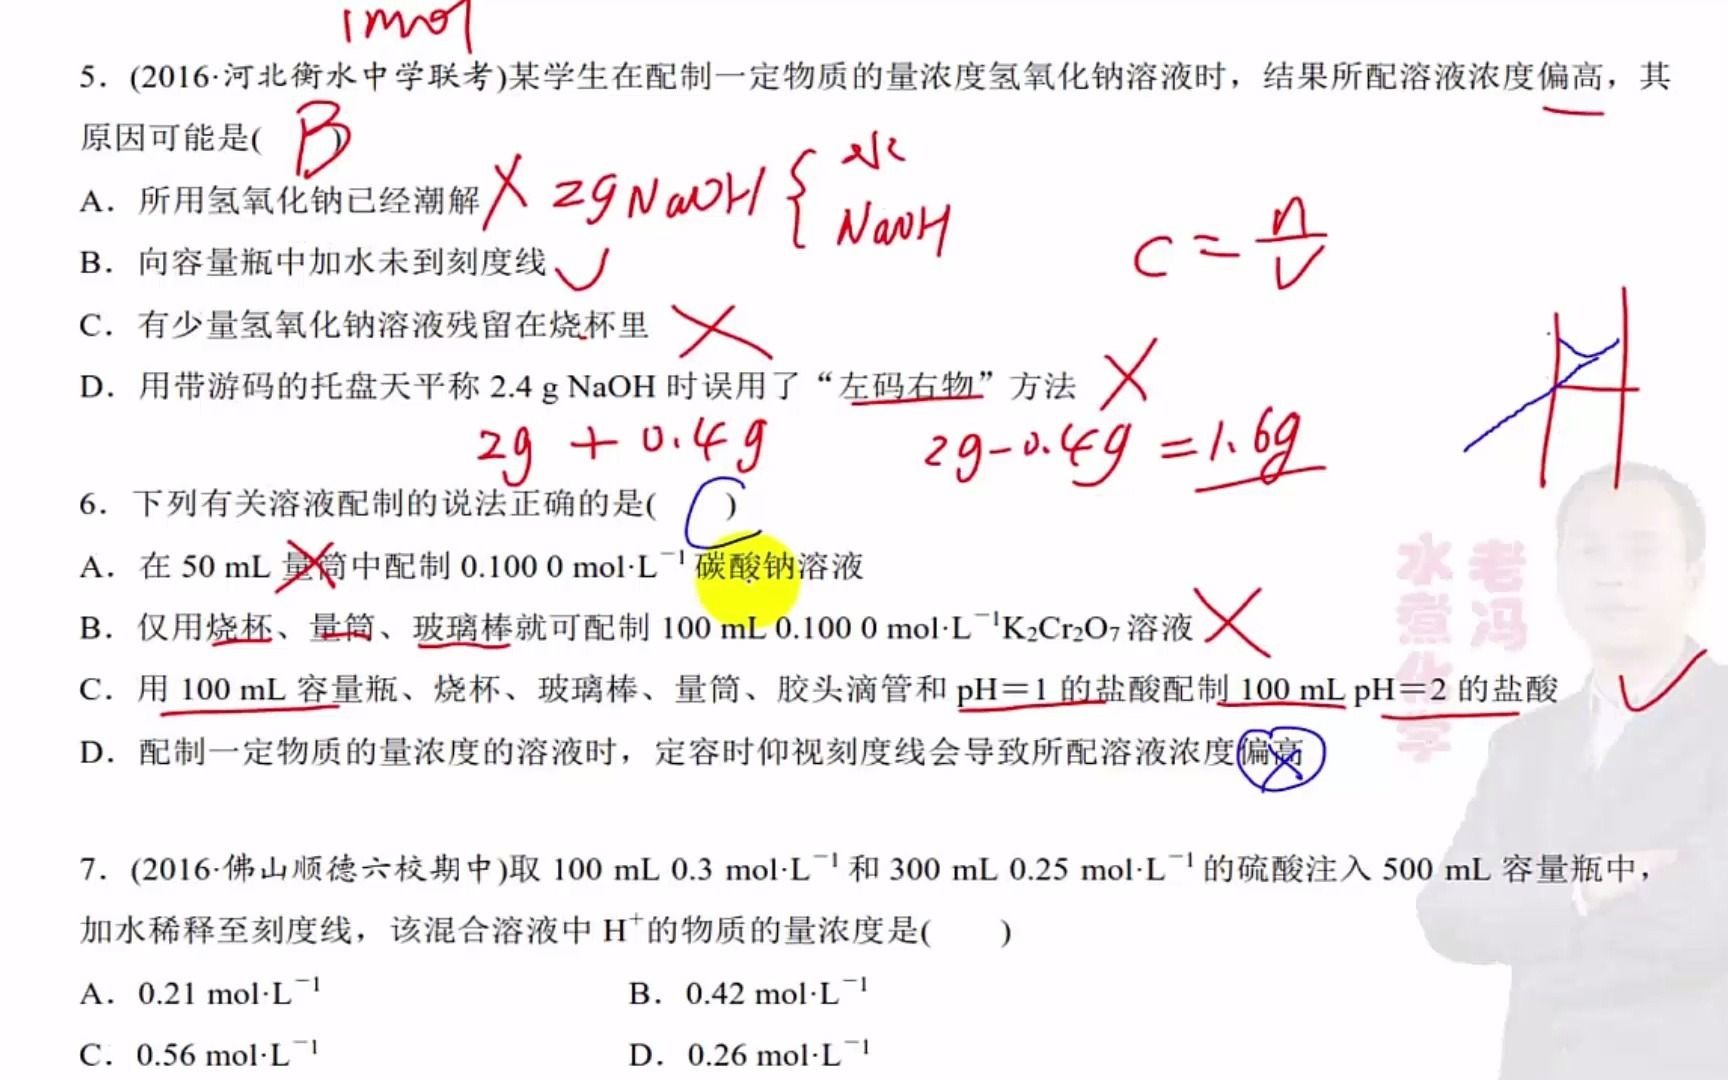 1mol
5．(2016·河北衡水中学联考)某学生在配制一定物质的量浓度氢氧化钠溶液时，结果所配溶液浓度偏高，其
原因可能是( B )
A．所用氢氧化钠已经潮解 × 2g NaOH { 水 NaOH
B．向容量瓶中加水未到刻度线 ✓
c = n/V
C．有少量氢氧化钠溶液残留在烧杯里 ×
D．用带游码的托盘天平称 2.4 g NaOH 时误用了“左码右物”方法 ×
2g + 0.4g 2g-0.4g = 1.6g
6．下列有关溶液配制的说法正确的是( C )
A．在 50 mL 量筒中配制 0.100 0 mol·L⁻¹ 碳酸钠溶液
B．仅用烧杯、量筒、玻璃棒就可配制 100 mL 0.100 0 mol·L⁻¹K₂Cr₂O₇ 溶液 ×
C．用 100 mL 容量瓶、烧杯、玻璃棒、量筒、胶头滴管和 pH＝1 的盐酸配制 100 mL pH＝2 的盐酸 ✓
D．配制一定物质的量浓度的溶液时，定容时仰视刻度线会导致所配溶液浓度偏高 ×
老冯
水煮化学
7．(2016·佛山顺德六校期中)取 100 mL 0.3 mol·L⁻¹ 和 300 mL 0.25 mol·L⁻¹ 的硫酸注入 500 mL 容量瓶中，
加水稀释至刻度线，该混合溶液中 H⁺的物质的量浓度是(　　)
A．0.21 mol·L⁻¹ B．0.42 mol·L⁻¹
C．0.56 mol·L⁻¹ D．0.26 mol·L⁻¹